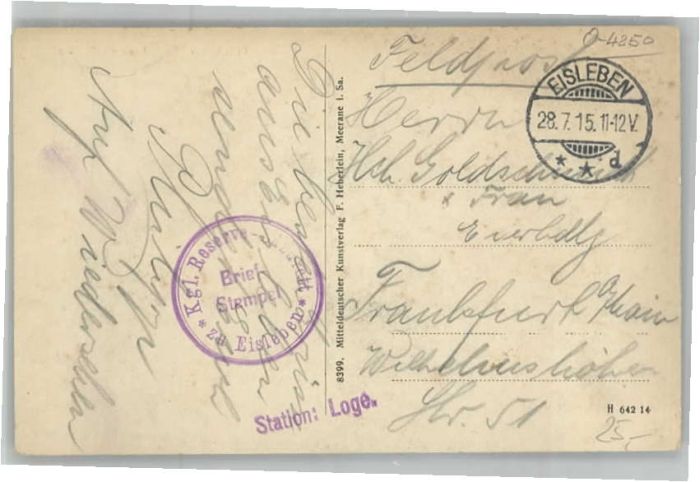 Die besten Grüße
aus Eisleben
sendet Euch
Philipp
Auf Wiedersehen
Kgl. Reserve-Lazarett
Brief-
Stempel
zu Eisleben
Station: Loge.
8399. Mitteldeutscher Kunstverlag F. Heberlein, Meerane i. Sa.
O-4250
Feldpost
EISLEBEN
28.7.15.11-12V.
* * d
Herrn
Hch. Goldschmidt
Frau
Frankfurt a/Main
Wilhelmshöher
Str. 51
H 642 14
25,-